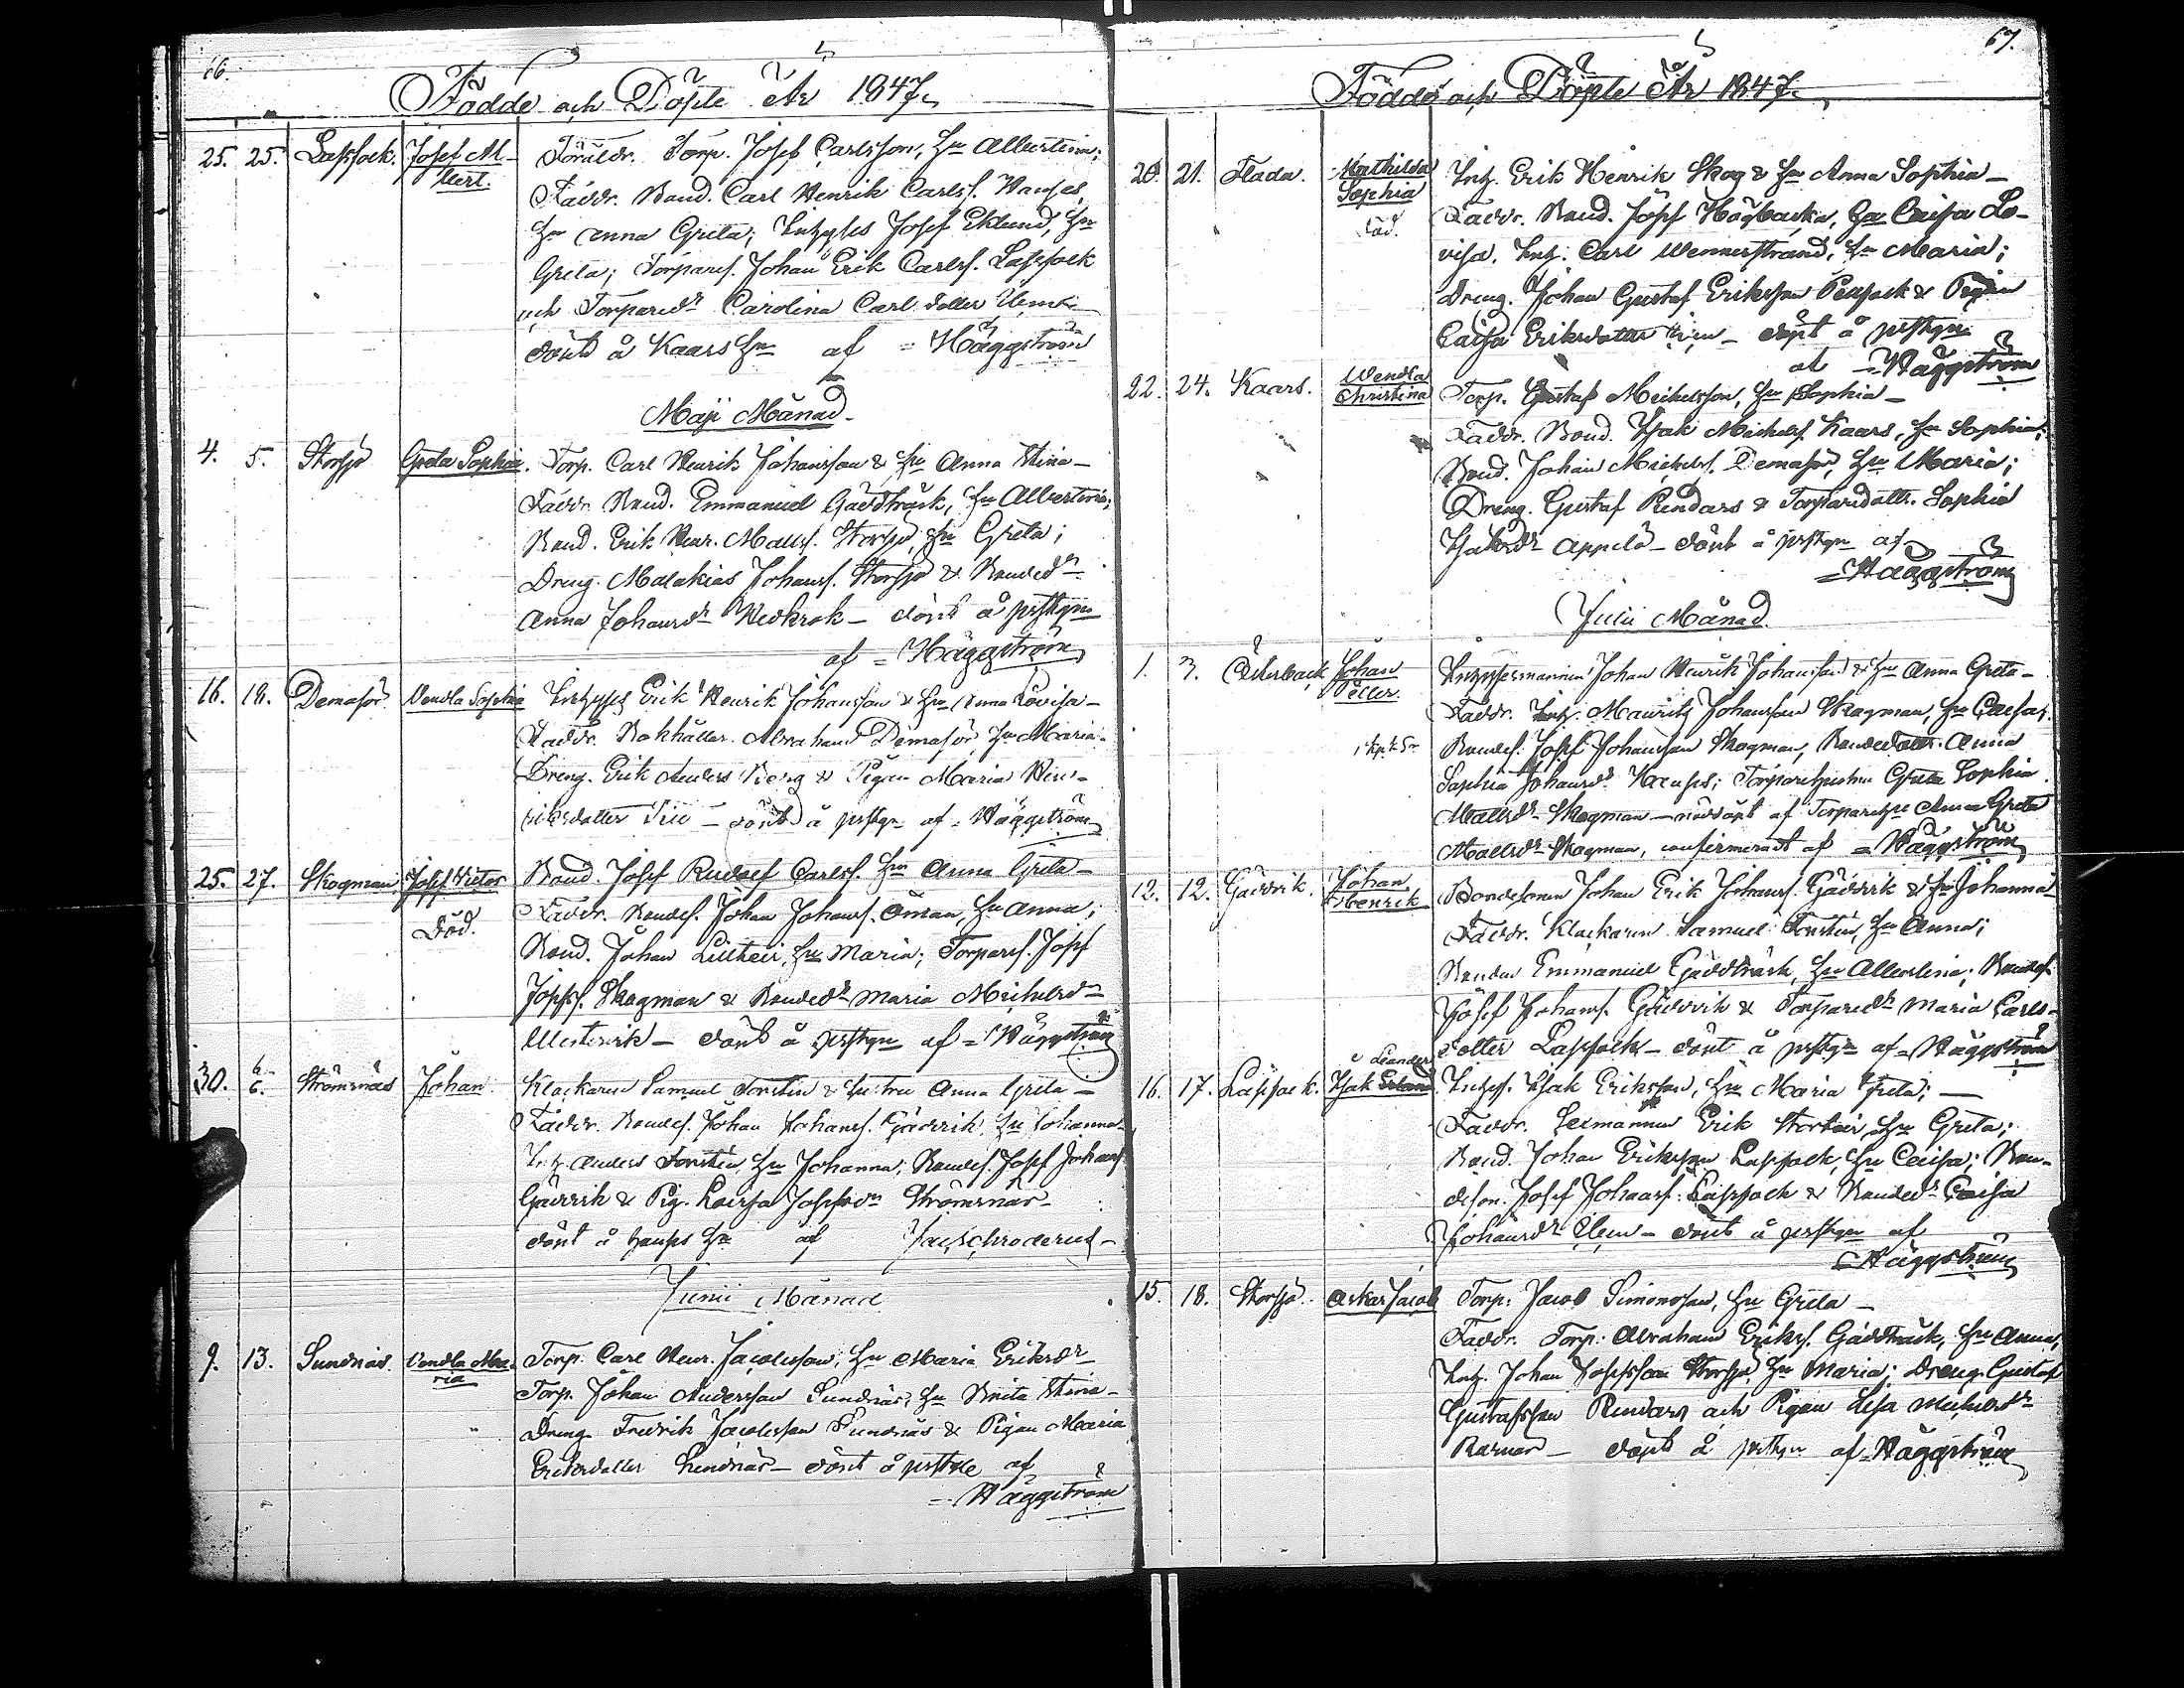 66.
Födde och Döpte År 1847.
25. 25. Lappfock. Josef Al-
bert.
Föräldr. Torp. Josef Carlsson, Hu Albertina;
Faddr. Bond. Carl Henrik Carlss. Haufes,
Hu Anna Greta; Inhyses Josef Eklund, Hu
Greta; Torpares. Johan Erik Carlss. Lappfock
och Torparedr Carolina Carlsdotter
döpt å Kaars Hn af Häggström
Maji Månad.
4. 5. Storsjö Greta Sophia. Torp. Carl Henrik Johansson & Hu Anna Stina –
Faddr. Bond. Emmanuel Gäddträsk, Hu Albertina;
Bond. Erik Henr. Matts. Storsjö, Hu Greta;
Dreng. Malakias Johanss. Storsjö & Bondedr
Anna Johansdr Wedkrok – döpt å prstgn
af Häggström
16. 18. Demasör Vendla Sophia Inhyses Erik Henrik Johansson & Hu Anna Lovisa –
Faddr. Bokhåller. Abraham Demasör, Hu Maria.
Dreng. Erik Anders Berg & Pigan Maria Hen-
riksdotter – döpt å prstgn af Häggström
25. 27. Skogman. Josef Victor
Död.
Bond. Josef Rudolf Carlss. Hu Anna Greta –
Faddr. Bondes. Johan Johanss. Öman, Hu Anna;
Bond. Johan Hu Maria; Torpares. Josef
Josefss. Skogman & Bondedr Maria Michelsdr
Westervik – döpt å prstgn af Häggström
30. 6. Strömsnäs Johan Klockaren Samuel Forstén & Hustru Anna Greta –
Faddr. Bondes. Johan Johanss. Gädvik, Hu Johanna
Inh. Anders Forstén, Hu Johanna; Bondes. Josef Johanss.
Gädvik & Pig. Lovisa Josefsdr Strömsnäs –
döpt å af
Junii Månad
9. 13. Sundnäs. Vendla Ma-
ria
Torp. Carl Henr. Jacobsson, Hu Maria Eriksdr
Torp. Johan Andersson Sundnäs, Hu Brita Stina –
Dreng Fredrik Jacobsson Sundnäs & Pigan Maria
Eriksdotter Sundnäs – döpt å af
Häggström
67.
Födde och Döpte År 1847.
20. 21. Flada. Mathilda
Sophia
död.
Inh. Erik Henrik Skog & Hu Anna Sophia –
Faddr. Bond. Josef Högbacka, Hu Caisa Lo-
visa, Inh. Carl Wennerstrand, Hu Maria;
Dreng. Johan Gustaf Eriksson & Pigan
Caisa Eriksdotter – döpt å prstgn
af Häggström
22. 24. Kaars. Wendla
Christina
Torp. Gustaf Michelsson, Hu Sophia –
Faddr. Bond. Isak Michelss. Kaars, Hu Sophia;
Bond. Johan Michelss. Demasör, Hu Maria;
Dreng. Gustaf Rendars & Torparedottr. Sophia
Isaksdr Appelö – döpt å prstgn af
Häggström
Julii Månad.
1. 3. Österback Johan
Peter.
Inhysesmannen Johan Henrik Johansson & Hu Anna Greta –
Faddr. Inh. Mauritz Johansson Skogman, Hu Caisa;
Bondes. Josef Johansson Skogman, Bondedottr. Anna
Sophia Johansdr. Haufes; Torparehustru Greta Sophia
Mattsdr Skogman – nöddöpt af Torparehu Anna Greta
Mattsdr Skogman, confirmeradt af Häggström
12. 12. Gädvik. Johan
Henrik
Bondesonen Johan Erik Johanss. Gädvik & Hu Johanna –
Faddr. Klockaren Samuel Forstén, Hu Anna;
Bonden Emmanuel Gäddträsk, Hu Albertina; Bondes.
Josef Johanss. Gädvik & Torparedr Maria Carls-
dotter Lappfock – döpt å prstgn af Häggström
16. 17. Lappfock. Isak Leander
Inhyss. Isak Eriksson, Hu Maria Greta; –
Faddr. Sexmannen Erik Hu Greta;
Bond. Johan Eriksson Lappfock, Hu Caisa; Bon-
deson. Josef Johanss. Lappfock & Bondedr Caisa
Johansdr – döpt å prstgn af
Häggström
15. 18. Storsjö. Oskar Jacob Torp. Jacob Simonsson, Hu Greta –
Faddr. Torp. Abraham Erikss. Gäddträsk, Hu Anna,
Inh. Johan Josefsson Storsjö, Hu Maria; Dreng Gustaf
Gustafsson Rendars och Pigan Lisa Michelsdr
– döpt å prstgn af Häggström